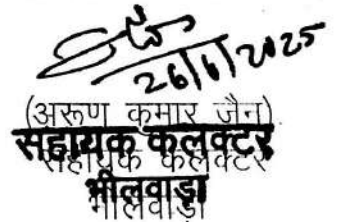 26/6/2025
(अरूण कुमार जैन)
सहायक कलक्टर
सहायक कलक्टर
भीलवाड़ा
भीलवाड़ा